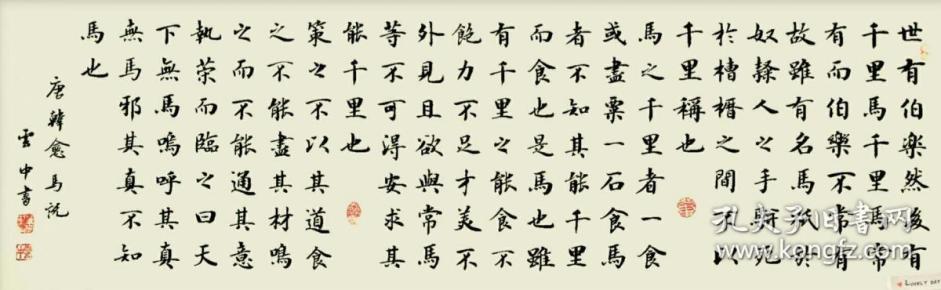 世有伯樂然後有
千里馬千里馬常
有而伯樂不常有
故雖有名馬祇於
奴隸人之手駢死
於槽櫪之間不以
千里稱也
馬之千里者一食
或盡粟一石食馬
者不知其能千里
而食也是馬也雖
有千里之能食不
飽力不足才美不
外見且欲與常馬
等不可得安求其
能千里也
策之不以其道食
之不能盡其材鳴
之而不能通其意
執策而臨之曰天
下無馬嗚呼其真
無馬邪其真不知
馬也
唐韓愈馬說
雲中書
孔夫子旧书网
www.kongfz.com